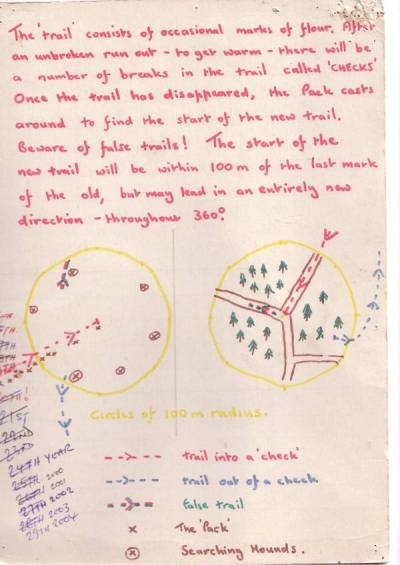 The 'trail' consists of occasional marks of flour. After
an unbroken run out - to get warm - there will be
a number of breaks in the trail called 'CHECKS'
Once the trail has disappeared, the Pack casts
around to find the start of the new trail.
Beware of false trails! The start of the
new trail will be within 100 m of the last mark
of the old, but may lead in an entirely new
direction - throughout 360°.
Circles of 100 m radius.
21ST
22ND
23RD
24TH YEAR
25TH 2000
26TH 2001
27TH 2002
28TH 2003
29TH 2004
trail into a 'check'
trail out of a check
False trail
x The 'Pack'
Searching Hounds.